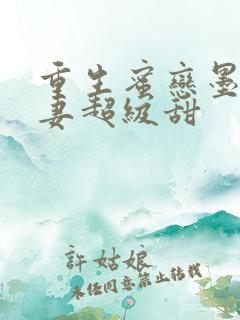 重生蜜戀墨
妻超級甜
許姑娘
未經同意禁止轉載